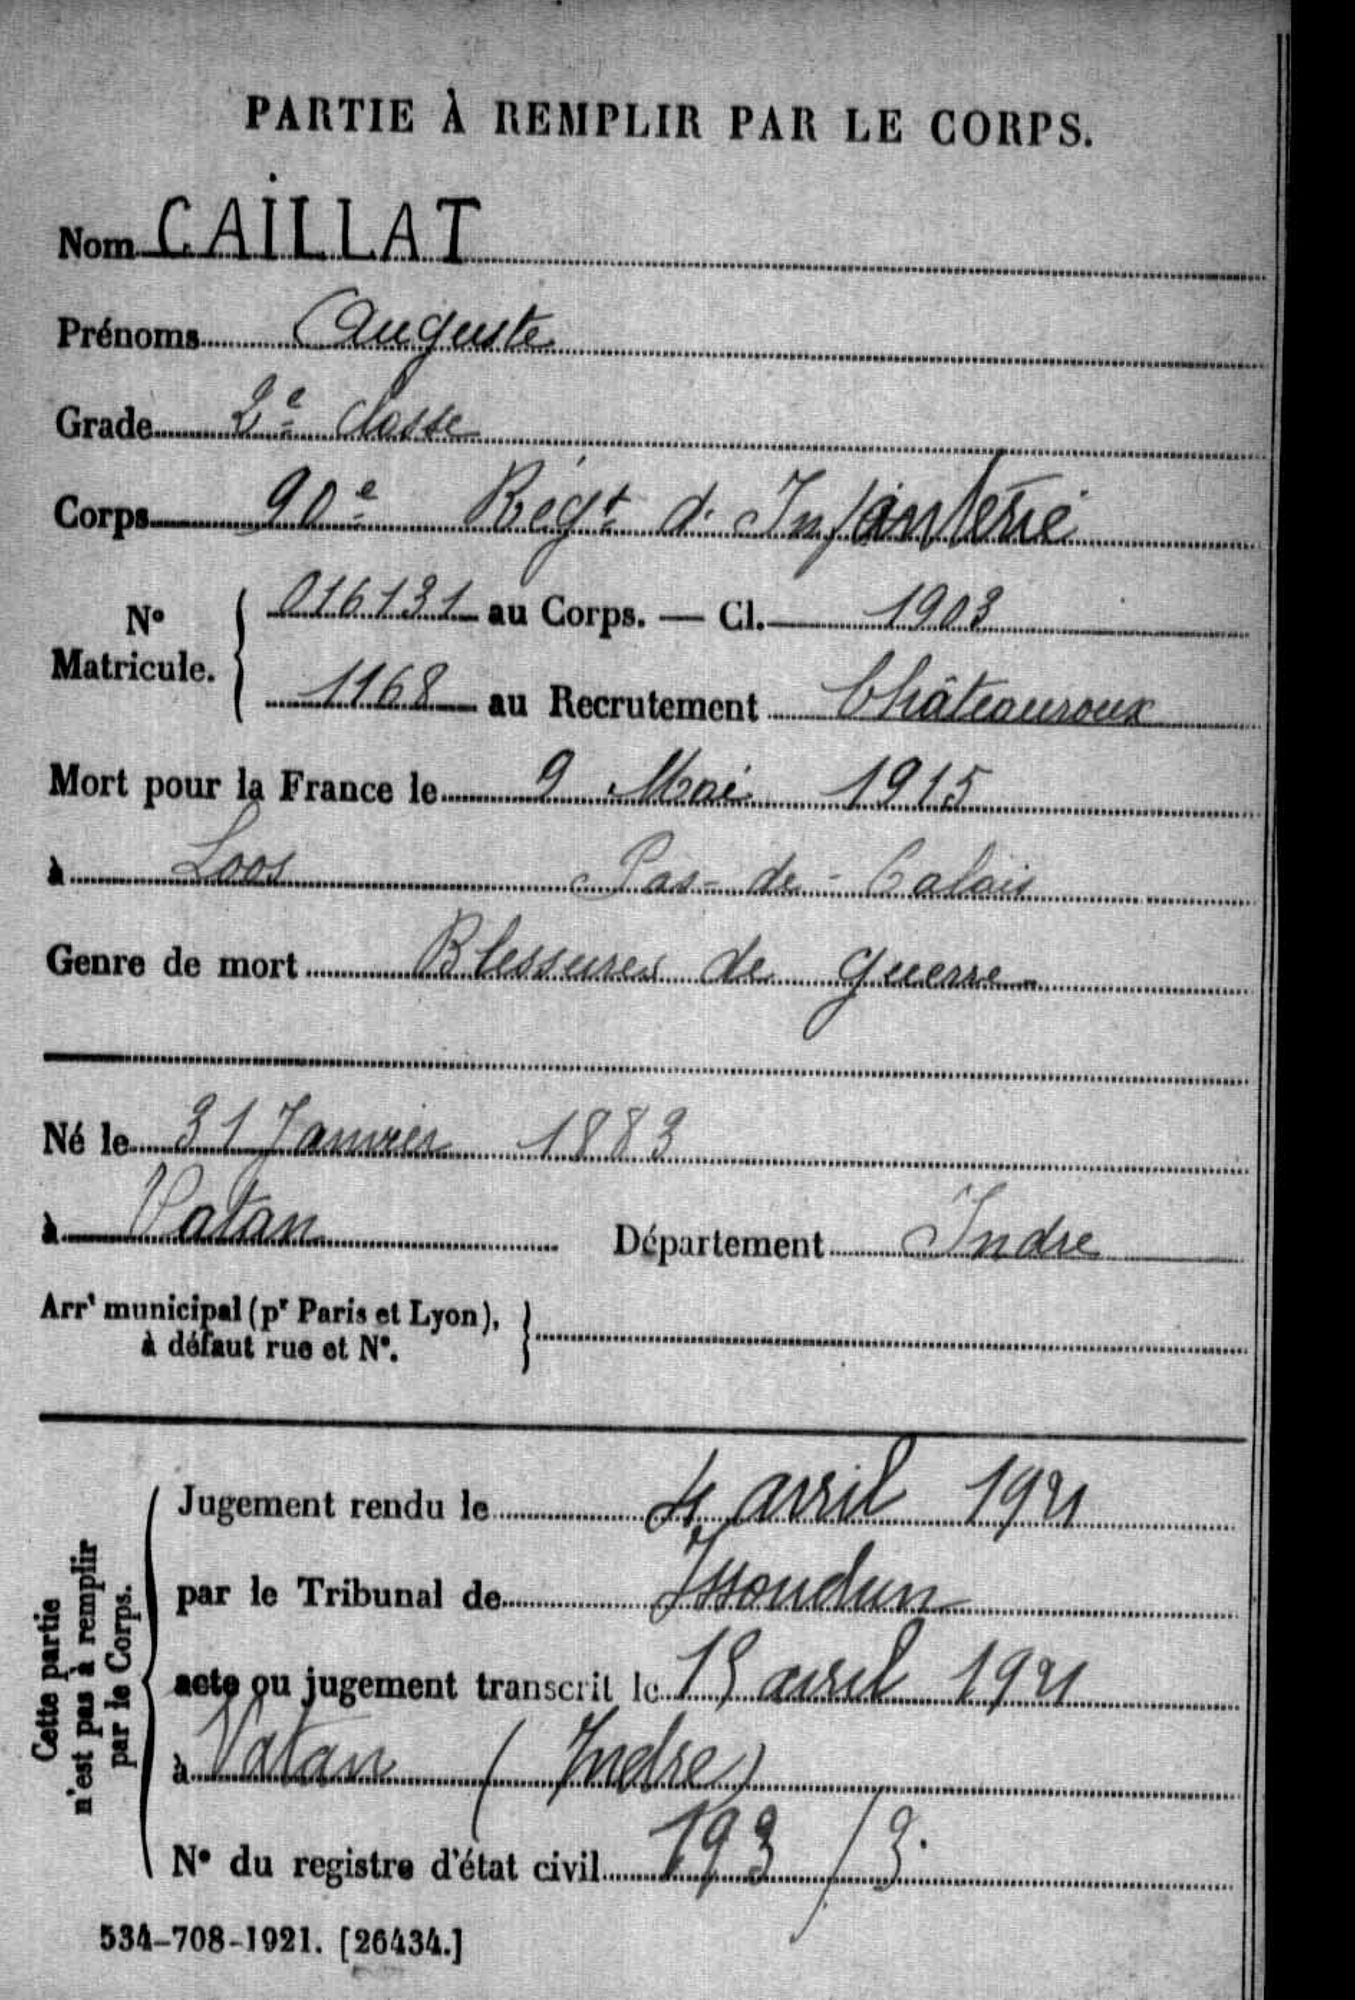 PARTIE À REMPLIR PAR LE CORPS.
Nom CAILLAT
Prénoms Auguste
Grade 2e Classe
Corps 90e Régt d. Infanterie
No Matricule. 016131 au Corps. — Cl. 1903
1168 au Recrutement Châteauroux
Mort pour la France le 9 Mai 1915
à Loos Pas-de-Calais
Genre de mort Blessures de guerre
Né le 31 Janvier 1883
à Vatan Département Indre
Arrt municipal (pr Paris et Lyon),
à défaut rue et No.
Cette partie
n'est pas à remplir
par le Corps.
Jugement rendu le 4 avril 1921
par le Tribunal de Issoudun
acte ou jugement transcrit le 15 avril 1921
à Vatan (Indre)
No du registre d'état civil 193/3.
534-708-1921. [26434.]